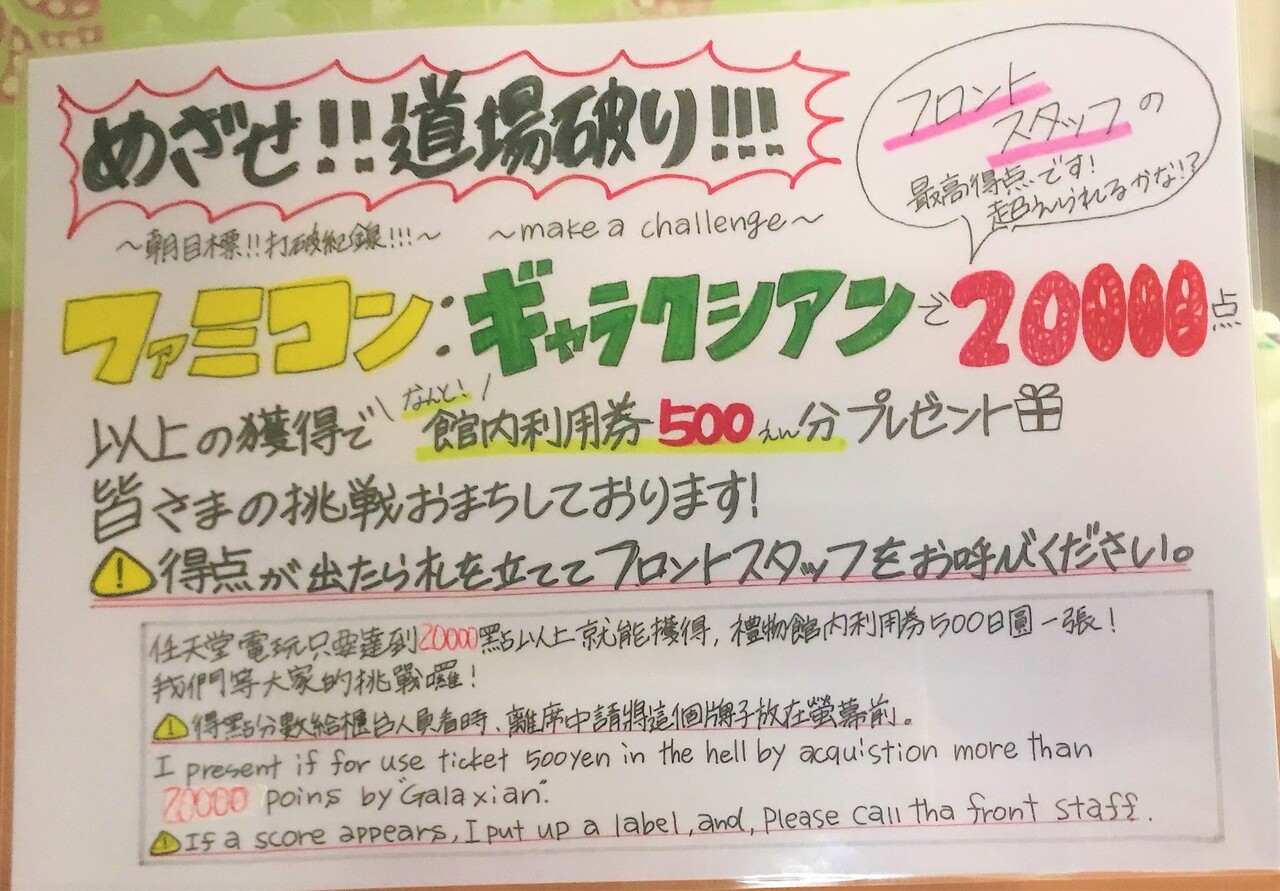 めざせ!!道場破り!!!
フロント
スタッフの
最高得点です!
超えられるかな!?
～朝目標!!打破紀録!!!～ ～make a challenge～
ファミコン:ギャラクシアンで20000点
なんと!
以上の獲得で館内利用券500えん分プレゼント
皆さまの挑戦おまちしております!
得点が出たら札を立ててフロントスタッフをお呼びください。
任天堂電玩只要達到20000點以上就能獲得,禮物館内利用券500日圓一張!
我們等大家的挑戰囉!
得點分數給櫃台人員看時、離席中請將這個牌子放在螢幕前。
I present if for use ticket 500yen in the hell by acquistion more than
20000 poins by "Galaxian".
If a score appears, I put up a label, and, Please call tha front staff.